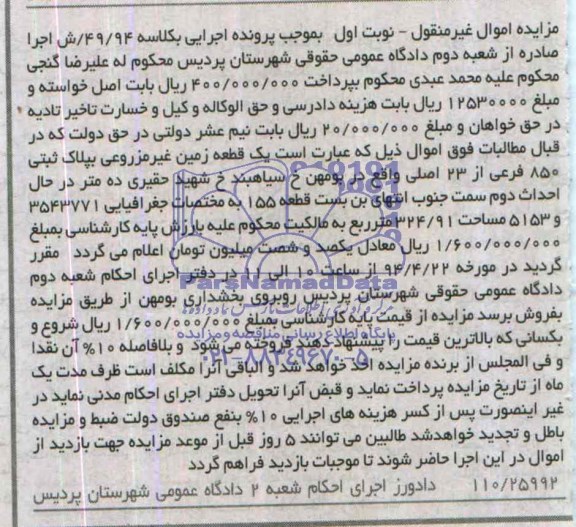 مزایده اموال غیرمنقول - نوبت اول بموجب پرونده اجرایی بکلاسه ۴۹/۹۴/ش اجرا
صادره از شعبه دوم دادگاه عمومی حقوقی شهرستان پردیس محکوم له علیرضا گنجی
محکوم علیه محمد عبدی محکوم بپرداخت ۴۰۰/۰۰۰/۰۰۰ ریال بابت اصل خواسته و
مبلغ ۱۲۵۳۰۰۰۰ ریال بابت هزینه دادرسی و حق الوکاله و کیل و خسارت تاخیر تادیه
در حق خواهان و مبلغ ۲۰/۰۰۰/۰۰۰ ریال بابت نیم عشر دولتی در حق دولت که در
قبال مطالبات فوق اموال ذیل که عبارت است یک قطعه زمین غیرمزروعی بپلاک ثبتی
۸۵۰ فرعی از ۲۳ اصلی واقع در بومهن خ سیاهبند خ شهید حقیری ده متر در حال
احداث دوم سمت جنوب انتهای بن بست قطعه ۱۵۵ به مختصات جغرافیایی ۳۵۴۳۷۷۱
و ۵۱۵۳ مساحت ۳۲۴/۹۱ مترربع به مالکیت محکوم علیه بارزش پایه کارشناسی بمبلغ
۱/۶۰۰/۰۰۰/۰۰۰ ریال معادل یکصد و شصت میلیون تومان اعلام می گردد مقرر
گردید در مورخه ۹۴/۴/۲۲ از ساعت ۱۰ الی ۱۱ در دفتر اجرای احکام شعبه دوم
دادگاه عمومی حقوقی شهرستان پردیس روبروی بخشداری بومهن از طریق مزایده
بفروش برسد مزایده از قیمت پایه کارشناسی بمبلغ ۱/۶۰۰/۰۰۰/۰۰۰ ریال شروع و
بکسانی که بالاترین قیمت را پیشنهاد دهند فروخته می شود و بلافاصله ۱۰% آن نقدا
و فی المجلس از برنده مزایده اخذ خواهد شد و الباقی آنرا مکلف است ظرف مدت یک
ماه از تاریخ مزایده پرداخت نماید و قبض آنرا تحویل دفتر اجرای احکام مدنی نماید در
غیر اینصورت پس از کسر هزینه های اجرایی ۱۰% بنفع صندوق دولت ضبط و مزایده
باطل و تجدید خواهدشد طالبین می توانند ۵ روز قبل از موعد مزایده جهت بازدید از
اموال در این اجرا حاضر شوند تا موجبات بازدید فراهم گردد
۱۱۰/۲۵۹۹۲ دادورز اجرای احکام شعبه ۲ دادگاه عمومی شهرستان پردیس
ParsNamadData
پایگاه اطلاع رسانی مناقصه و مزایده
۰۲۱-۸۸۳۴۹۶۷۰-۵